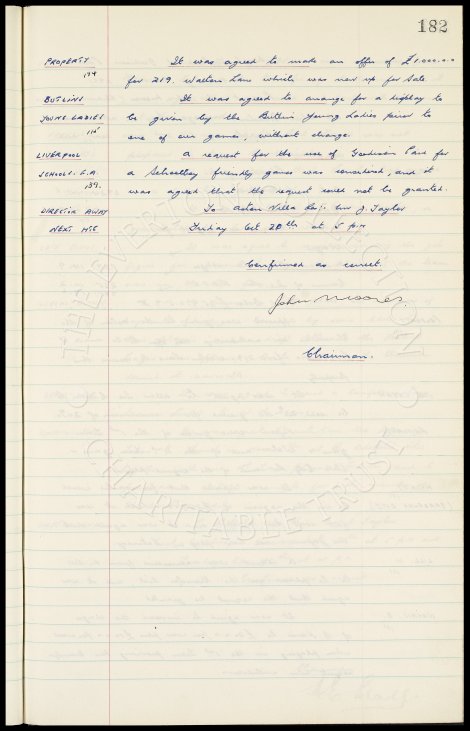 182
PROPERTY It was agreed to make an offer of £1000.0.0
174 for 219. Walton Lane which was now up for sale
BUTLINS It was agreed to arrange for a display to
YOUNG LADIES be given by the Butlins Young Ladies prior to
one of our games, without charge.
LIVERPOOL A request for the use of Goodison Park for
SCHOOLS. F.A a Schoolboy friendly games was considered, and it
139. was agreed that the request could not be granted.
DIRECTOR AWAY To Aston Villa Res:- Mr J. Taylor
NEXT MTG Friday Oct 28th at 5 p.m
Confirmed as correct.
John Moores.
Chairman.
THE EVERTON COLLECTION
CHARITABLE TRUST